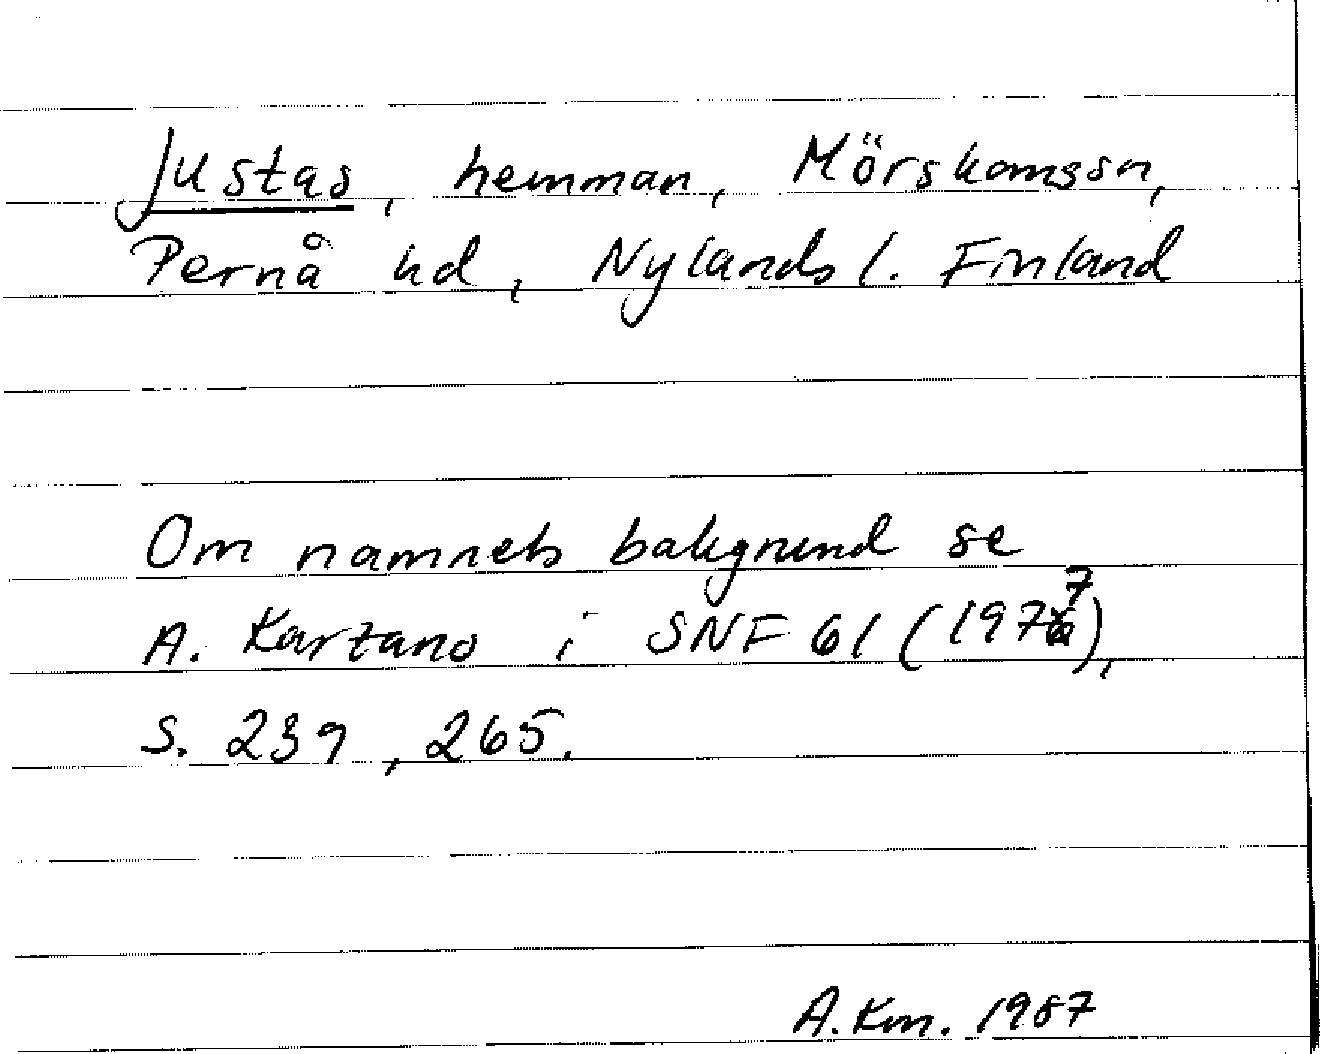 Justas, hemman, Mörskomssn,
Pernå hd, Nylands l. Finland
Om namnets bakgrund se
A. Karzano i SNF 61 (1977),
S. 239, 265.
A. Km. 1987